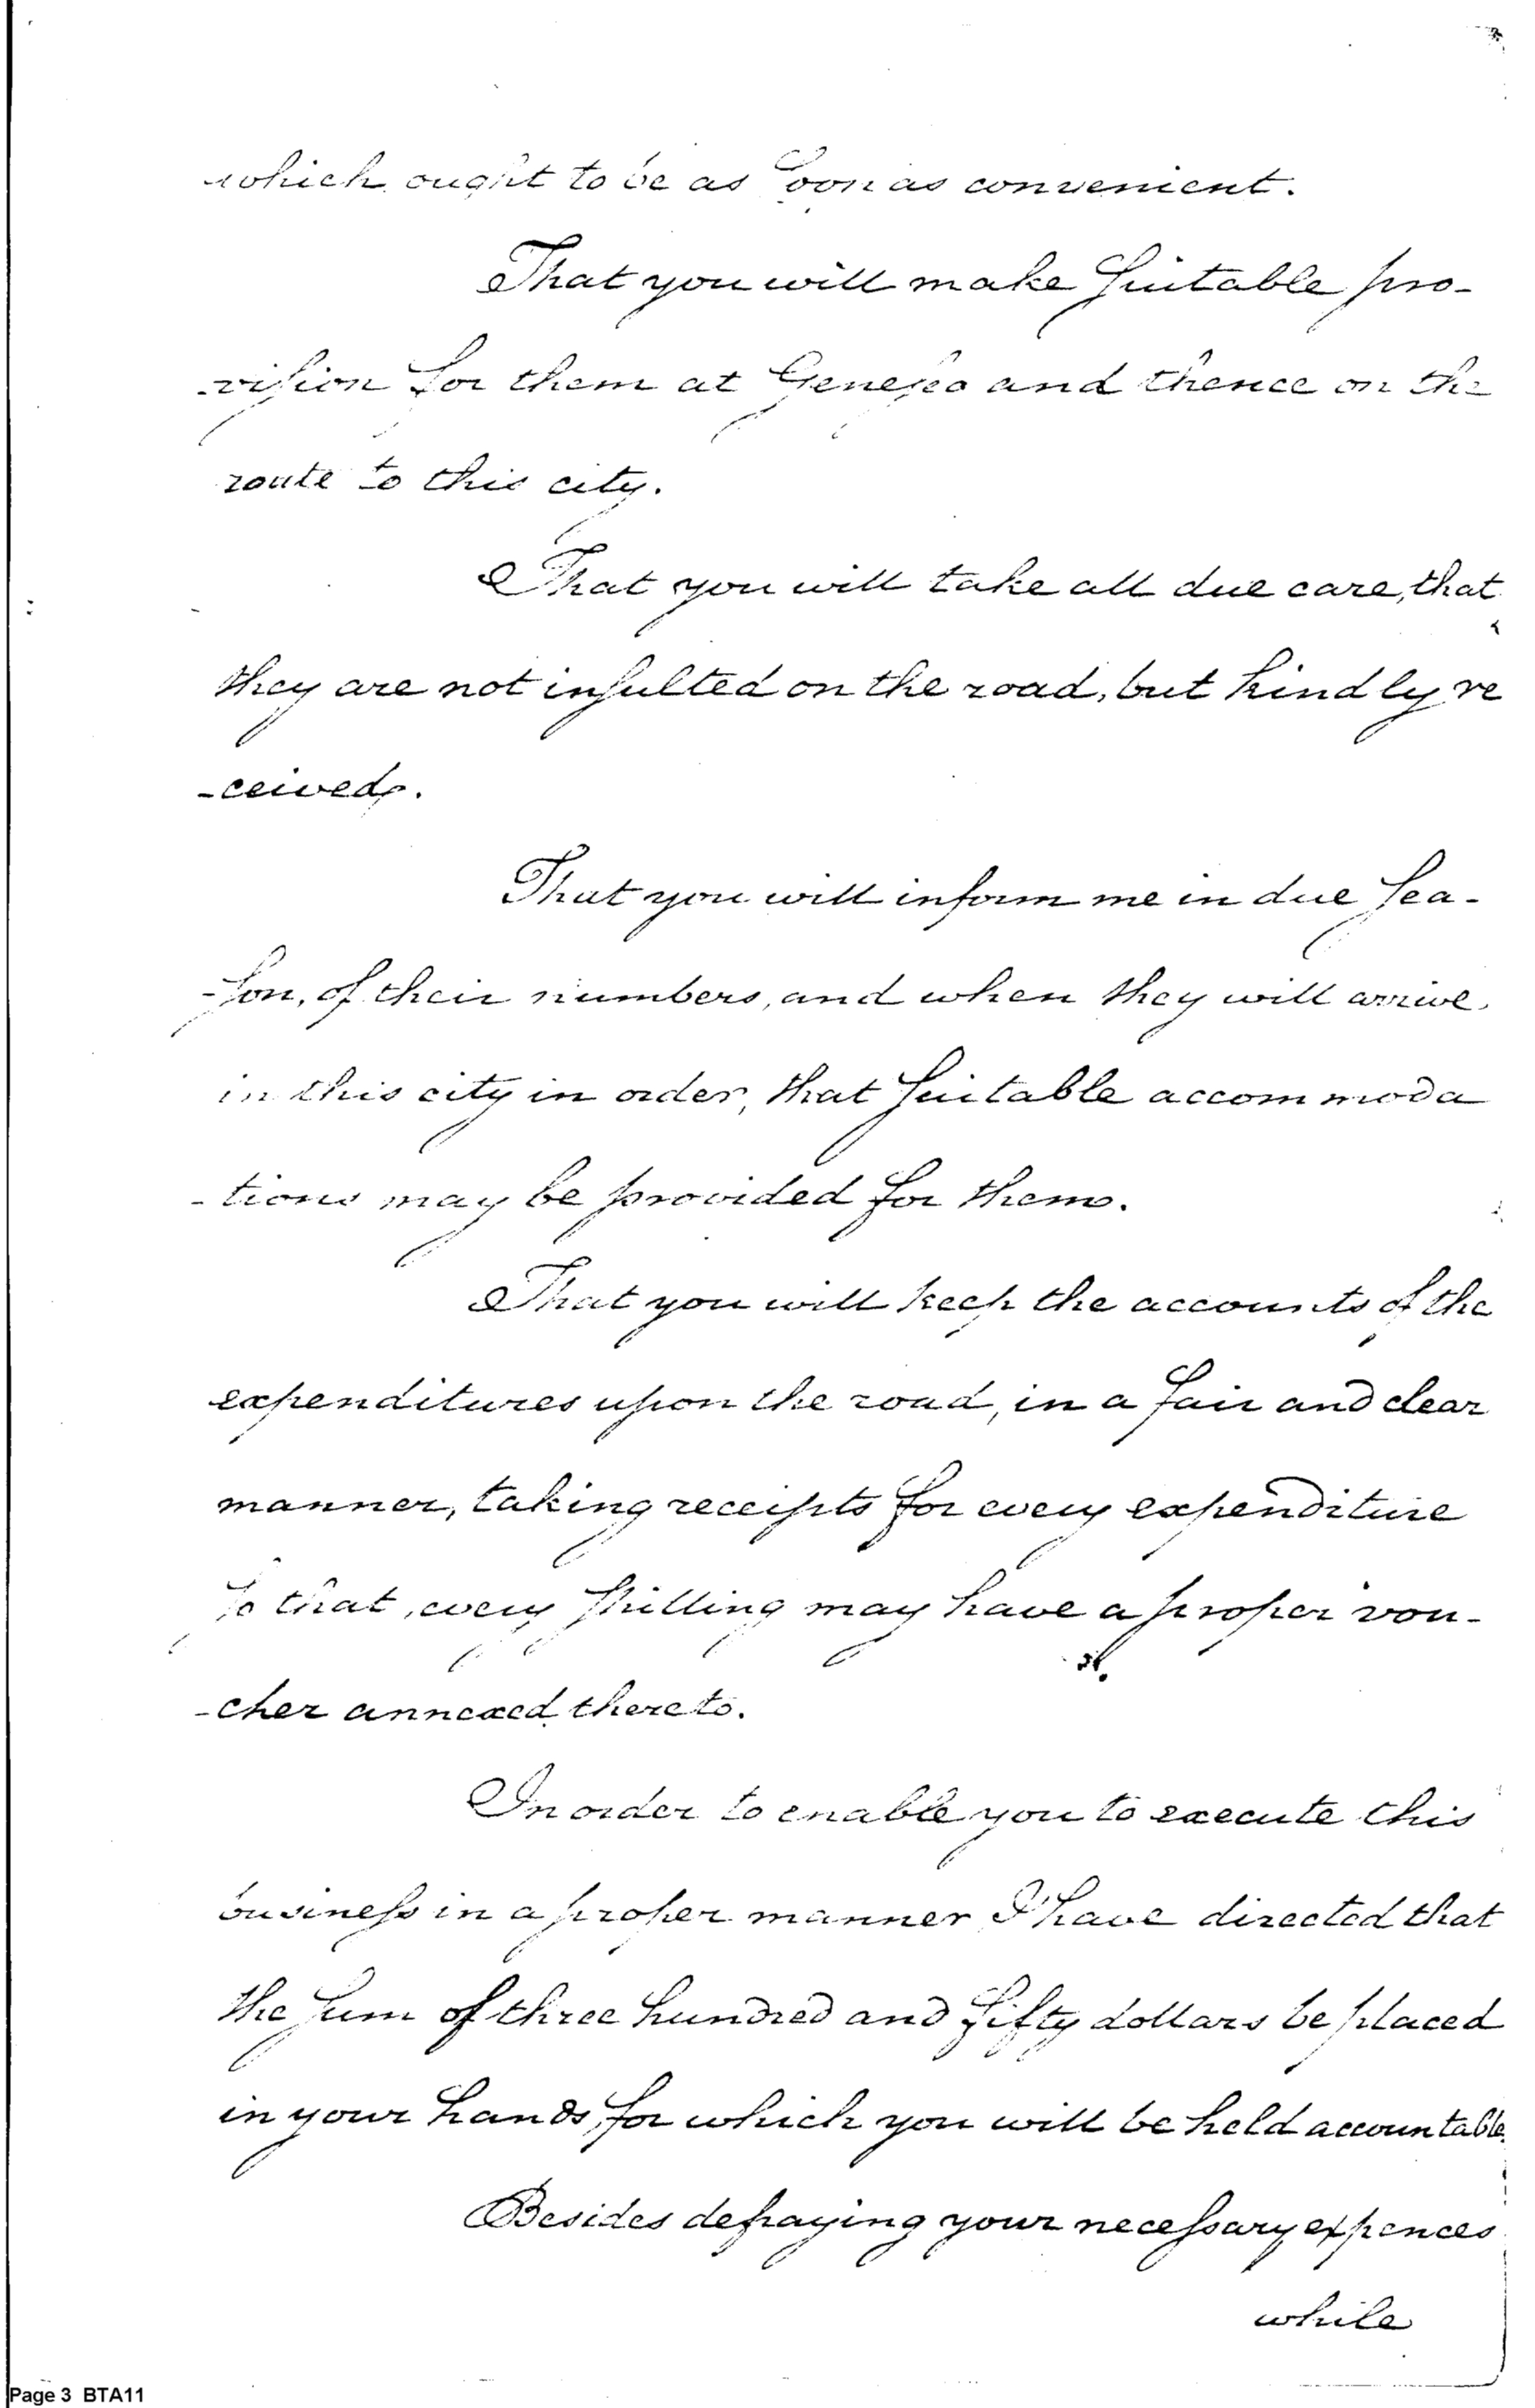 which ought to be as soon as convenient.
That you will make suitable pro-
-vision for them at Geneseo and thence on the
route to this city.
That you will take all due care, that
they are not insulted on the road, but kindly re
-ceived.
That you will inform me in due sea-
-son, of their numbers, and when they will arrive
in this city in order, that suitable accommoda
-tions may be provided for them.
That you will keep the accounts of the
expenditures upon the road, in a fair and clear
manner, taking receipts for every expenditure
so that, every shilling may have a proper vou-
-cher annexed thereto.
In order to enable you to execute this
business in a proper manner I have directed that
the sum of three hundred and fifty dollars be placed
in your hands, for which you will be held accountable.
Besides defraying your necessary expences
while
Page 3 BTA11